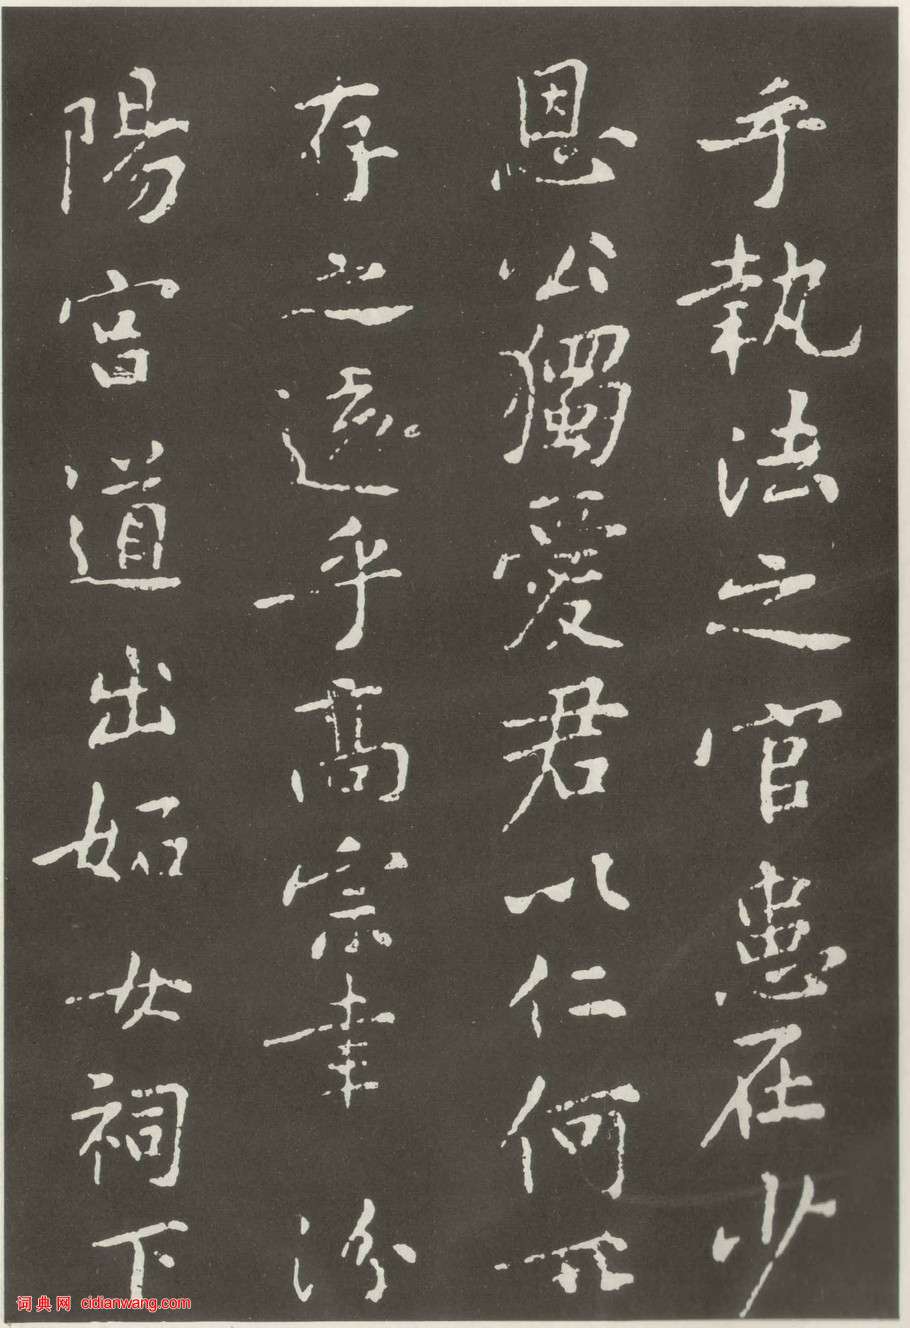 乎執法之官患在少
恩公獨愛君以仁何所
存之遠乎高宗幸汾
陽宮道出妬女祠下
词典网 cidianwang.com